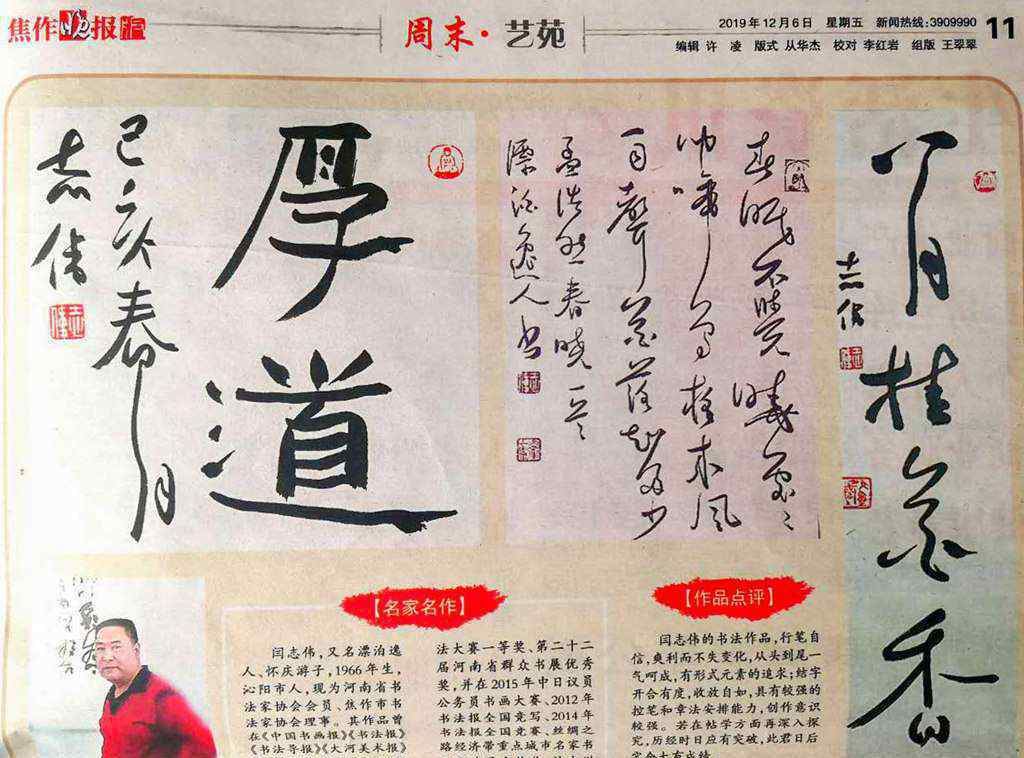 焦作晚报
周末·艺苑
2019年12月6日 星期五 新闻热线:3909990
11
编辑 许 凌 版式 从华杰 校对 李红岩 组版 王翠翠
八月桂花香
志伟
春眠不覺曉處々
闻啼鸟夜来风
雨聲花落知多少
孟浩然春晓一首
漂泊逸人书
厚道
己亥春月
志伟
【名家名作】
闫志伟,又名漂泊逸
人、怀庆游子,1966年生,
沁阳市人,现为河南省书
法家协会会员、焦作市书
法家协会理事。其作品曾
在《中国书画报》《书法报》
《书法导报》《大河美术报》
法大赛一等奖、第二十二
届河南省群众书展优秀
奖,并在2015年中日议员
公务员书画大赛、2012年
书法报全国竞写、2014年
书法报全国竞赛、丝绸之
路经济带重点城市名家书
【作品点评】
闫志伟的书法作品,行笔自
信,爽利而不失变化,从头到尾一
气呵成,有形式元素的追求;结字
开合有度,收放自如,具有较强的
控笔和章法安排能力,创作意识
较强。若在帖学方面再深入探
究,历经时日应有突破,此君日后